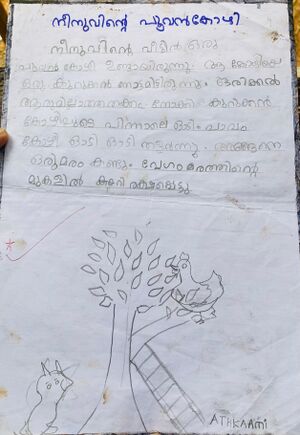 നീനുവിന്റെ പൂവൻകോഴി
നീനുവിന്റെ വീട്ടിൽ ഒരു
പൂവൻ കോഴി ഉണ്ടായിരുന്നു. ആ കോഴിയെ
ഒരു കുറുക്കൻ നോട്ടമിട്ടിരുന്നു. ഒരിക്കൽ
ആരുമില്ലാത്തതക്കം നോക്കി കുറുക്കൻ
കോഴിയുടെ പിന്നാലെ ഓടി. പാവം
കോഴി ഓടി ഓടി തളർന്നു. അങ്ങനെ
ഒരുമരം കണ്ടു. വേഗം മരത്തിന്റെ
മുകളിൽ കയറി രക്ഷപ്പെട്ടു
ATHKAAMI